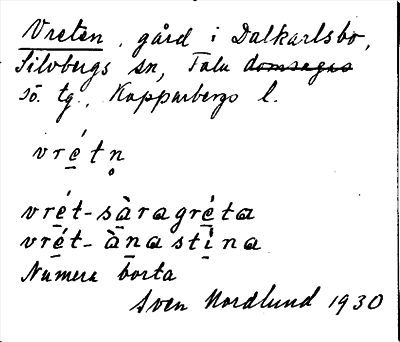 Vreten, gård i Dalkarlsbo,
Silvbergs sn, Falu domsagas
sö. tg., Kopparbergs l.
vré̱tn̥
vré̱t-sà̱ragré̱ta
vré̱t-à̱nastì̱na
Numera borta
Sven Nordlund 1930